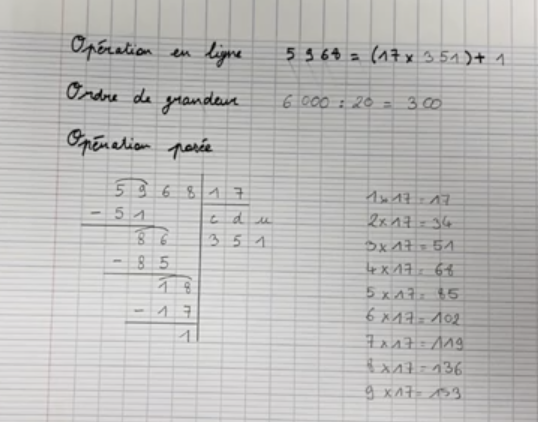 Opération en ligne 5 968 = (17 x 351) + 1
Ordre de grandeur 6 000 : 20 = 300
Opération posée
5 9 6 8 1 7
- 5 1 c d u
8 6 3 5 1
- 8 5
1 8
- 1 7
1
1 x 17 = 17
2 x 17 = 34
3 x 17 = 51
4 x 17 = 68
5 x 17 = 85
6 x 17 = 102
7 x 17 = 119
8 x 17 = 136
9 x 17 = 153